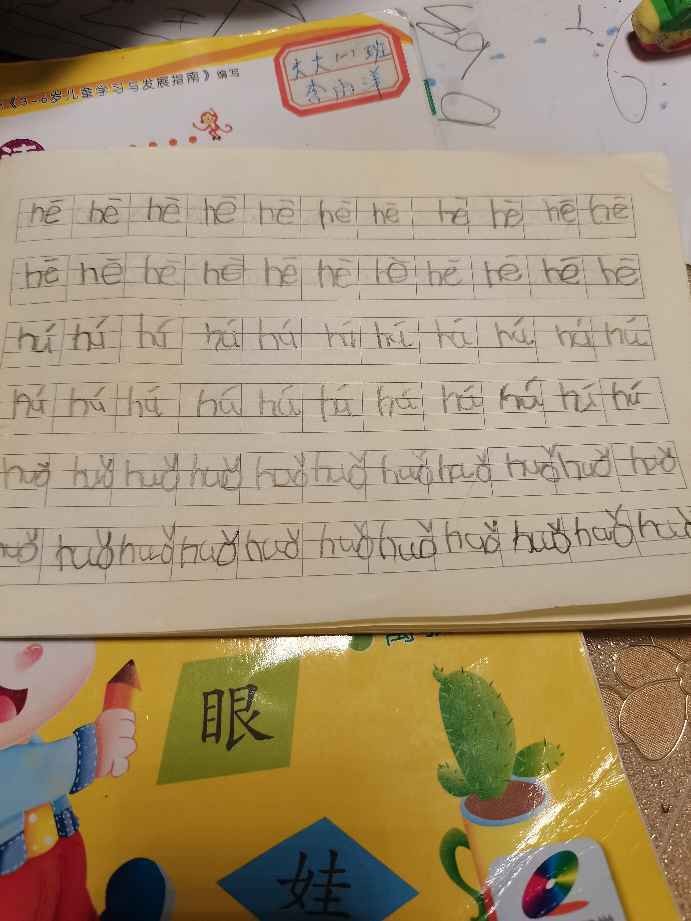 《3-6岁儿童学习与发展指南》编写
大大一班
李雨洋
hē hē hē hē hē hē hē hē hē hē hē
hē hē hē hē hē hē hē hē hē hē hē
hú hú hú hú hú hú hú hú hú hú hú
hú hú hú hú hú hú hú hú hú hú hú
huǒ huǒ huǒ huǒ huǒ huǒ huǒ huǒ huǒ huǒ huǒ
huǒ huǒ huǒ huǒ huǒ huǒ huǒ huǒ huǒ huǒ huǒ
眼
娃